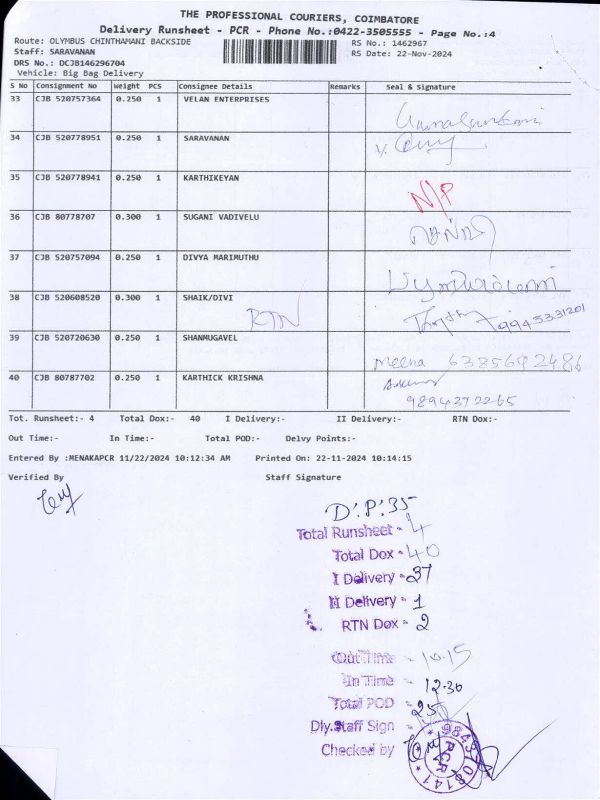 THE PROFESSIONAL COURIERS, COIMBATORE
Delivery Runsheet - PCR - Phone No.:0422-3505555 - Page No.:4
Route: OLYMBUS CHINTHAMANI BACKSIDE
RS No.: 1462967
Staff: SARAVANAN
RS Date: 22-Nov-2024
DRS No.: DCJB146296704
Vehicle: Big Bag Delivery
S No Consignment No Weight PCS Consignee Details Remarks Seal & Signature
33 CJB 520757364 0.250 1 VELAN ENTERPRISES
34 CJB 520778951 0.250 1 SARAVANAN
35 CJB 520778941 0.250 1 KARTHIKEYAN N/P
36 CJB 80778707 0.300 1 SUGANI VADIVELU
37 CJB 520757094 0.250 1 DIVYA MARIMUTHU
38 CJB 520608520 0.300 1 SHAIK/DIVI RTN 99945331201
39 CJB 520720630 0.250 1 SHANMUGAVEL meena 6385692486
40 CJB 80787702 0.250 1 KARTHICK KRISHNA 9894372265
Tot. Runsheet:- 4 Total Dox:- 40 I Delivery:- II Delivery:- RTN Dox:-
Out Time:- In Time:- Total POD:- Delvy Points:-
Entered By :MENAKAPCR 11/22/2024 10:12:34 AM Printed On: 22-11-2024 10:14:15
Verified By Staff Signature
D.P.35
Total Runsheet - 4
Total Dox - 40
I Delivery - 37
II Delivery - 1
RTN Dox - 2
Out Time - 10.15
In Time - 12.30
Total POD - 25
Dly.Staff Sign -
Checked by
PCR
9843708141